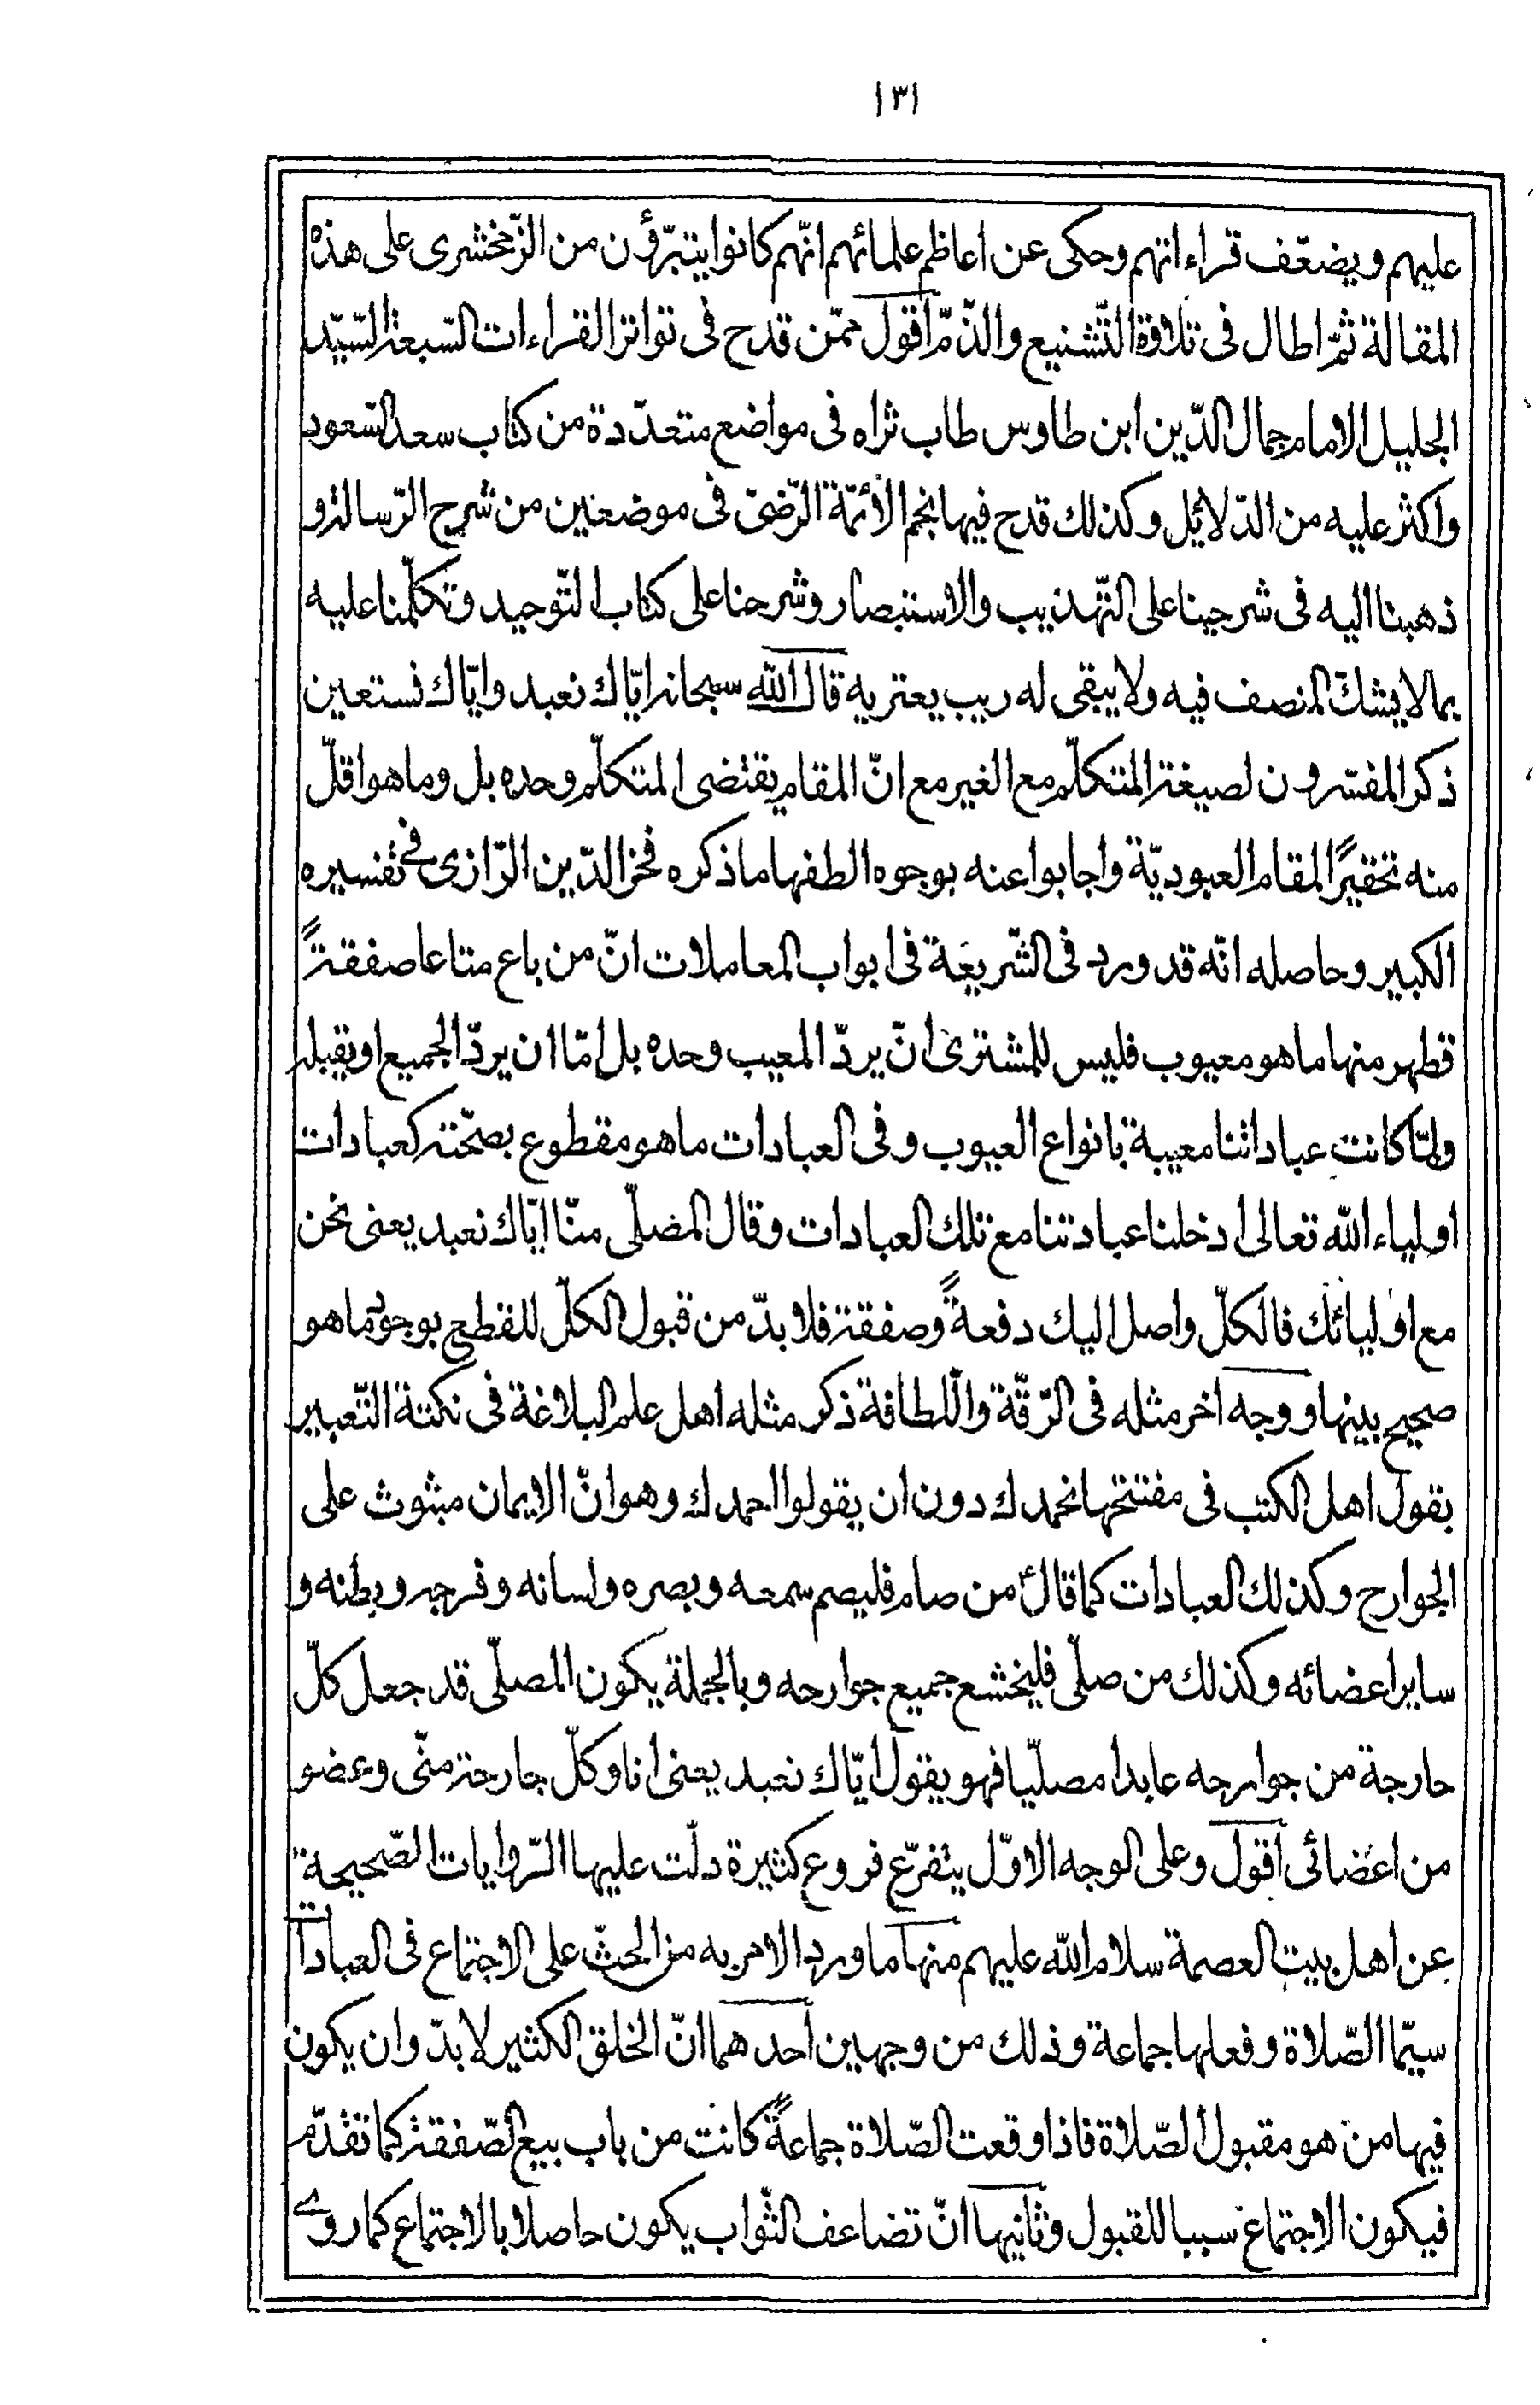 ١٣١
عليهم ويضعّف قراءاتهم وحكى عن اعاظم علمائهم انّهم كانوا يتبرّؤن من الزّمخشرى على هذه
المقالة ثمّ اطال فى تلاوة التّشنيع والذّمّ اقول ممّن قدح فى تواتر القراءات السّبعة السّيّد
الجليل الامام جمال الدّين ابن طاوس طاب ثراه فى مواضع متعدّدة من كتاب سعد السّعود
واكثر عليه من الدّلائل وكذلك قدح فيها نجم الأئمّة الرّضىّ فى موضعين من شرح الرّسالة و
ذهبنا اليه فى شرحينا على التّهذيب والاستبصار وشرحنا على كتاب التّوحيد وتكلّمنا عليه
بما لا يشكّ المنصف فيه ولا يبقى له ريب يعتريه قال الله سبحانه ايّاك نعبد وايّاك نستعين
ذكر المفسّرون لصيغة المتكلّم مع الغير مع انّ المقام يقتضى المتكلّم وحده بل وما هو اقلّ
منه تحقيرًا لمقام العبوديّة واجابوا عنه بوجوه الطفها ما ذكره فخر الدّين الرّازى فى تفسيره
الكبير وحاصله انّه قد ورد فى الشّريعة فى ابواب المعاملات انّ من باع متاعا صفقةً
فظهر منها ما هو معيوب فليس للمشترى انّ يردّ المعيب وحده بل امّا ان يردّ الجميع او يقبله
ولمّا كانت عباداتنا معيبة بانواع العيوب وفى العبادات ما هو مقطوع بصحّته كعبادات
اولياء الله تعالى ادخلنا عبادتنا مع تلك العبادات وقال المصلّى منّا ايّاك نعبد يعنى نحن
مع اوليائك فالكلّ واصل اليك دفعةً وصفقة فلا بدّ من قبول الكلّ للقطع بوجود ما هو
صحيح بينها ووجه اخر مثله فى الرّقّة واللّطافة ذكر مثله اهل علم البلاغة فى نكتة التّعبير
بقول اهل الكتب فى مفتتحها نحمدك دون ان يقولوا الحمد لك وهو انّ الايمان مبثوث على
الجوارح وكذلك العبادات كما قال ع من صام فليصم سمعه وبصره ولسانه وفرجه وبطنه و
ساير اعضائه وكذلك من صلّى فليخشع جميع جوارحه وبالجملة يكون المصلّى قد جعل كلّ
جارحة من جوارحه عابدا مصلّيا فهو يقول ايّاك نعبد يعنى انا وكلّ جارحة منّى وعضو
من اعضائى اقول وعلى الوجه الاوّل يتفرّع فروع كثيرة دلّت عليها الرّوايات الصّحيحة
عن اهل بيت العصمة سلام الله عليهم منها ما ورد الامر به من الحثّ على الاجتماع فى العبادات
سيّما الصّلاة وفعلها جماعة وذلك من وجهين احدهما انّ الخلق الكثير لا بدّ وان يكون
فيها من هو مقبول الصّلاة فاذا وقعت الصّلاة جماعةً كانت من باب بيع الصّفقة كما تقدّم
فيكون الاجتماع سببا للقبول وثانيها انّ تضاعف الثّواب يكون حاصلا بالاجتماع كما روى